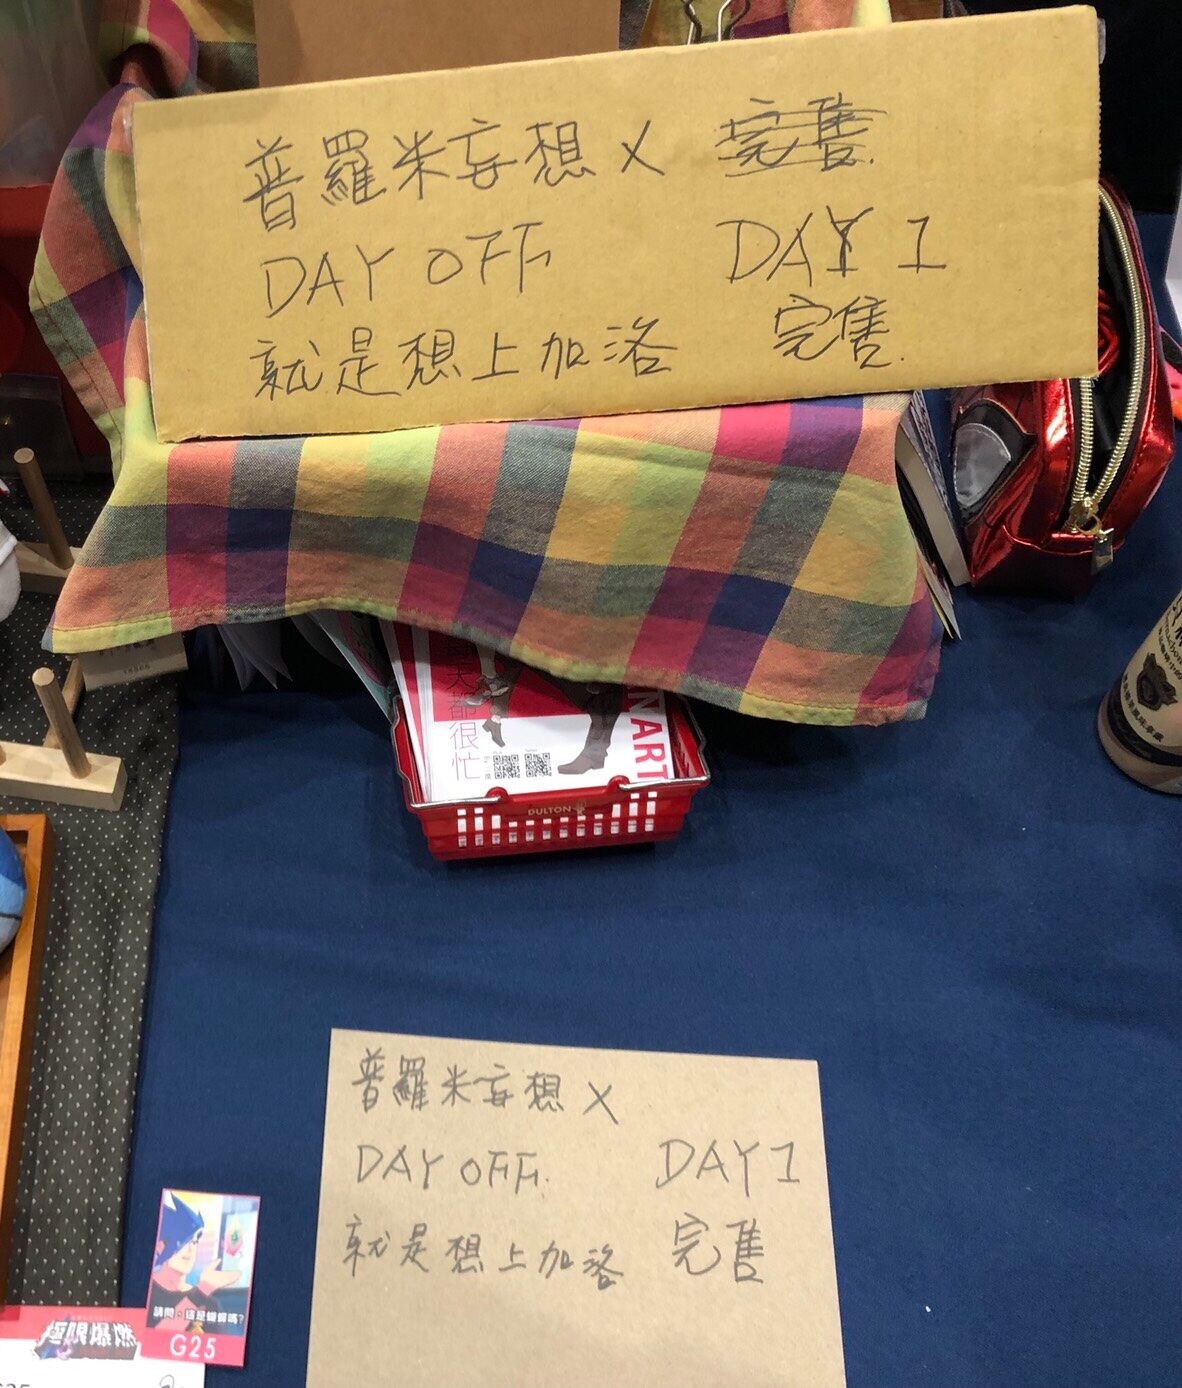 普羅米妄想 X 完售.
DAY OFF DAY 1
就是想上加洛 完售.
天都很忙
NART
DULTON
普羅米妄想 X
DAY OFF. DAY 1
就是想上加洛 完售
請問，這是蝴蝶嗎?
G25
極限爆燃